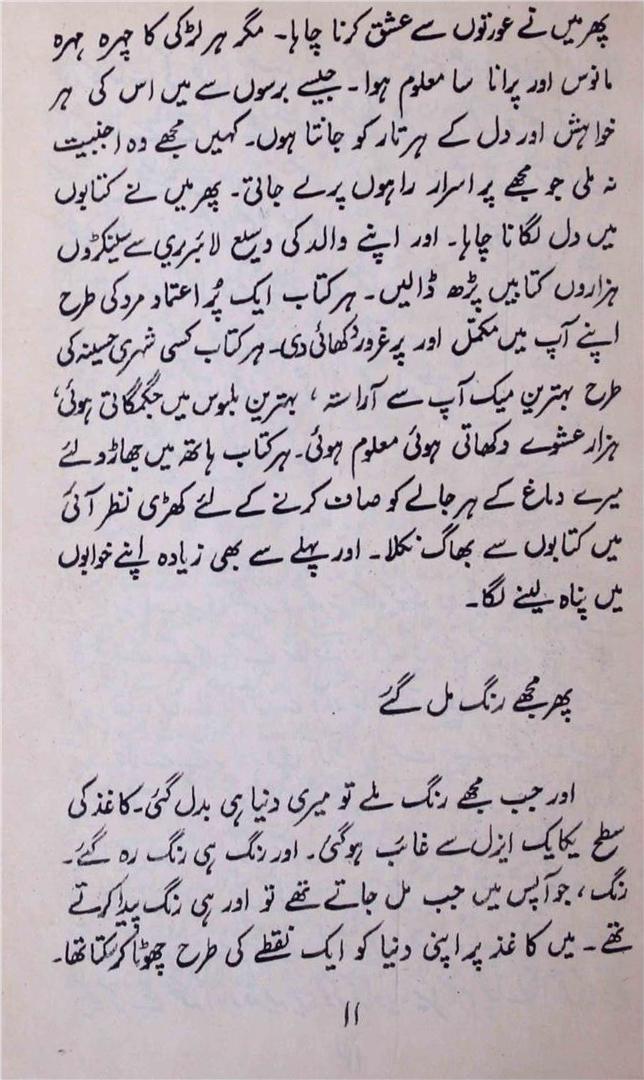 پھر میں نے عورتوں سے عشق کرنا چاہا۔ مگر ہر لڑکی کا چہرہ مہرہ
مانوس اور پرانا سا معلوم ہوا۔ جیسے برسوں سے میں اس کی ہر
خواہش اور دل کے ہر تار کو جانتا ہوں۔ کہیں مجھے وہ اجنبیت
نہ ملی جو مجھے پر اسرار راہوں پر لے جاتی۔ پھر میں نے کتابوں
میں دل لگانا چاہا۔ اور اپنے والد کی وسیع لائبرری سے سینکڑوں
ہزاروں کتابیں پڑھ ڈالیں۔ ہر کتاب ایک پُر اعتماد مرد کی طرح
اپنے آپ میں مکمّل اور پر غرور دکھائی دی۔ ہر کتاب کسی شہری حسینہ کی
طرح بہترین میک آپ سے آراستہ ، بہترین ملبوس میں جگمگاتی ہوئی،
ہزار عشوے دکھاتی ہوئی معلوم ہوئی۔ ہر کتاب ہاتھ میں جھاڑو لئے
میرے دماغ کے ہر جالے کو صاف کرنے کے لئے کھڑی نظر آئی
میں کتابوں سے بھاگ نکلا۔ اور پہلے سے بھی زیادہ اپنے خوابوں
میں پناہ لینے لگا۔
پھر مجھے رنگ مل گئے
اور جب مجھے رنگ ملے تو میری دنیا ہی بدل گئی۔ کاغذ کی
سطح یکایک ایزل سے غائب ہو گئی۔ اور رنگ ہی رنگ رہ گئے۔
رنگ، جو آپس میں جب مل جاتے تھے تو اور ہی رنگ پیدا کرتے
تھے۔ میں کاغذ پر اپنی دنیا کو ایک نقطے کی طرح چھوٹا کر سکتا تھا۔
۱۱